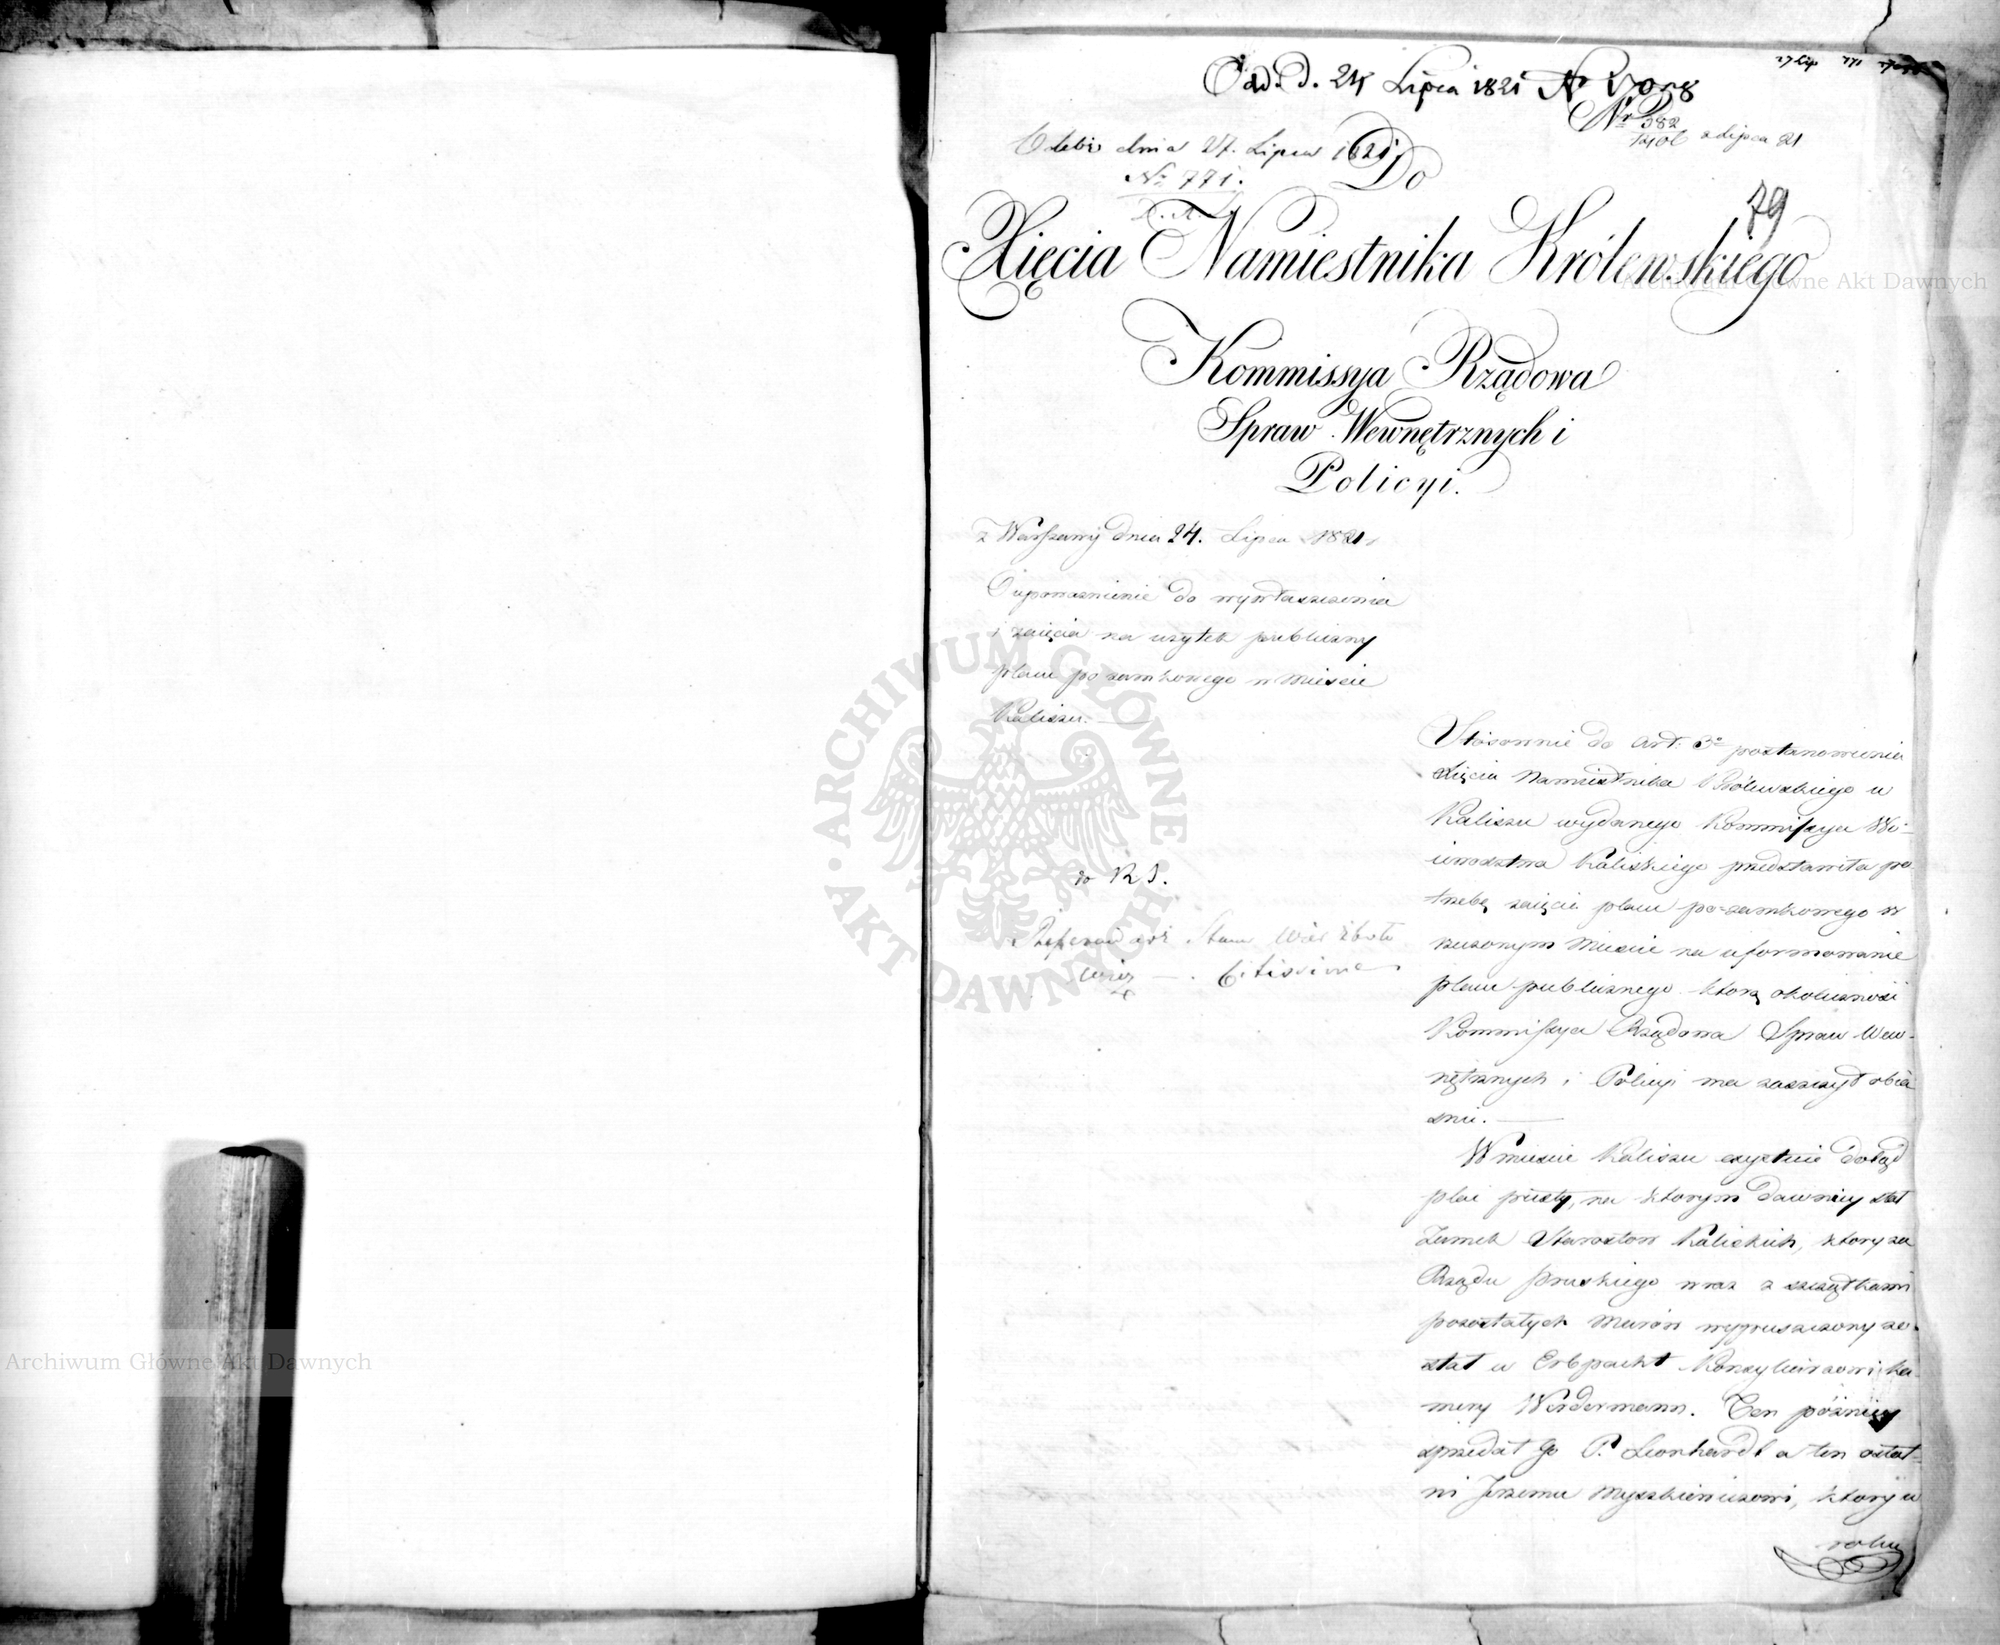 Odd. d. 24 Lipca 1821 N 17078
27 lip 771
Nr 382
12406 z lipca 21
Odebr dnia 27. Lipca 1821.
Nr 771.
79
Do
Xięcia Namiestnika Królewskiego
Kommissya Rządowa
Spraw Wewnętrznych i
Policyi.
z Warszawy dnia 24. Lipca 1821
O upoważnienie do wywłaszczenia
i zaięcia na użytek publiczny
placu po zamkowego w mieście
Kaliszu. —
do R S.
Referendarz Stanu
Citissime
Stósownie do Art. 3º postanowienia
Xięcia Namiestnika Królewskiego w
Kaliszu wydanego Kommissya Wo-
iewództwa Kaliskiego przedstawiła po-
trzebę zaięcia placu po-zamkowego w
rzeczonym Mieście na uformowanie
placu publicznego którą okoliczność
Kommissya Rządowa Spraw Wew-
nętrznych i Policyi ma zaszczyt obia-
śnić. —
W mieście Kaliszu exystuie dotąd
plac pusty, na którym dawniey stał
Zamek Starostów Kaliskich, który za
Rządu pruskiego wraz z szczątkami
pozostałych murów wypuszczony zo-
stał w Erbpacht Konsyliarzowi ka-
mery Werdermann. Ten późniey
sprzedał go P. Leonhardt a ten ostat-
ni Jerzemu Myszkiewiczowi, który w
roku
Archiwum Główne Akt Dawnych
ARCHIWUM GŁÓWNE · AKT DAWNYCH ·
Archiwum Główne Akt Dawnych